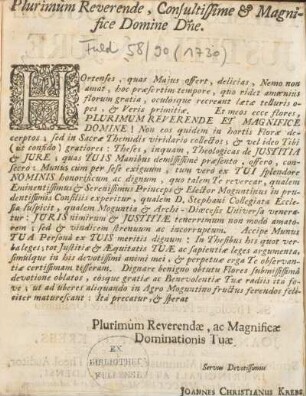 Plurimum Reverende, Consultissime & Magni-
fice Domine Dñe.
Fuld 58/90 (1730)
HOrtenses, quas Majus offert, delicias, Nemo non
amat, hoc præsertim tempore, quo ridet amænius
florum gratia, oculisque recreant læta telluris o-
pes, & Veris primitiæ. Et meos ecce flores,
PLURIMUM REVERENDE ET MAGNIFICE
DOMINE! Non eos quidem in hortis Floræ de-
cerptos, sed in Sacræ Themidis viridario collectos; & vel ideo Tibi
(ut confido) gratiores: Theses, inquam, Theologicas de JUSTITIA
& JURE, quas TUIS Manibus demississimè præsento, offero, con-
secro: Munus cum per sese exiguum, tum vero ex TUI splendore
NOMINIS honorificum ac dignum, quo talem Te reverear, qualem
Eminentissimus & Serenissimus Princeps & Elector Moguntinus in pru-
dentissimis Consiliis experitur, qualem D. Stephani Collegiata Eccle-
sia suspicit, qualem Moguntia & Archi-Diœcesis Universa venera-
tur: JURIS nimirum & JUSTITIÆ tenerrimum non modò amato-
rem; sed & vindicem strenuum ac incorruptum. Accipe Munus
TUÂ Persona ex TUIS meritis dignum: In Thesibus his quot ver-
ba leges; tot Justitiæ & Æquitatis TUÆ ac sapientiæ leges argumenta,
simulque in his devotissimi animi mei, & perpetuæ erga Te observan-
tiæ certissimam tesseram. Dignare benigno obtutu Flores submississimâ
devotione oblatos, eosque gratiæ ac Benevolentiæ Tuæ radiis ita fo-
ve, ut ad uberes aliquando in Agro Moguntino fructus ferendos feli-
citer maturescant: Ita precatur, & sperat
Plurimum Reverendæ, ac Magnificæ
Dominationis Tuæ
EX
BIBLIOTHECA
Servus Devotissimus
JOANNES CHRISTIANUS KREBS